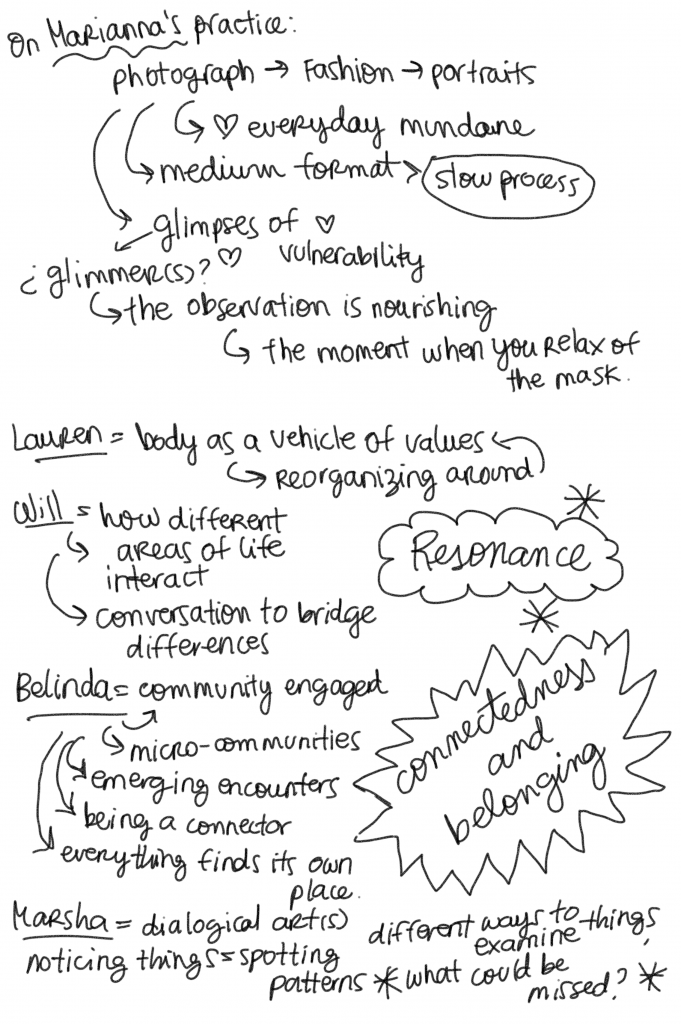 On Marianna's practice:
photograph → Fashion → portraits
♡ everyday mundane
medium format > slow process
glimpses of ♡
vulnerability
¿glimmer(s)? ♡
the observation is nourishing
the moment when you relax of
the mask.
Lauren = body as a vehicle of values
reorganizing around
Will = how different
areas of life
interact
conversation to bridge
differences
Resonance
Belinda = community engaged
micro-communities
emerging encounters
being a connector
everything finds its own
place.
connectedness
and
belonging
Marsha = dialogical art(s)
noticing things = spotting
patterns
different ways to things,
examine
* what could be
missed? *